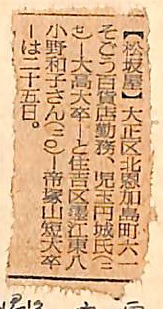 【松坂屋】大正区北恩加島町六ー
そごう百貨店勤務、児玉円城氏（二
七）―大高大卒―と住吉区墨江東八
小野和子さん（二〇）―帝塚山短大卒
―は二十五日。